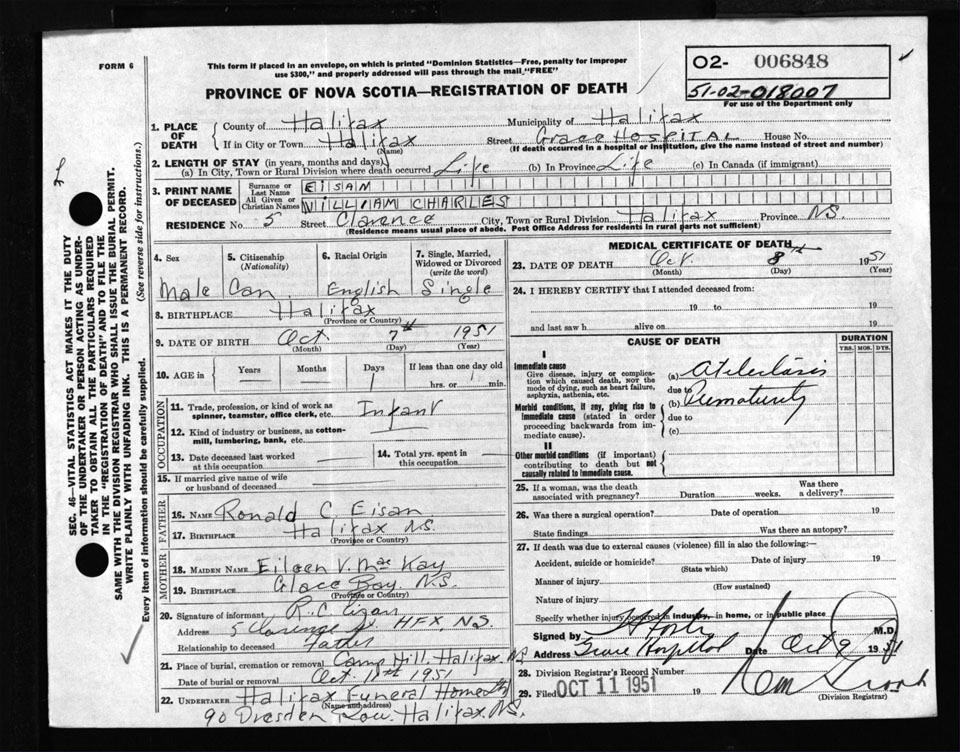 FORM 6
This form if placed in an envelope, on which is printed "Dominion Statistics—Free, penalty for improper
use $300," and properly addressed will pass through the mail "FREE"
PROVINCE OF NOVA SCOTIA—REGISTRATION OF DEATH
O2- 006848
51-02-018007
For use of the Department only
SEC. 46—VITAL STATISTICS ACT MAKES IT THE DUTY
OF THE UNDERTAKER OR PERSON ACTING AS UNDER-
TAKER TO OBTAIN ALL THE PARTICULARS REQUIRED
IN THE "REGISTRATION OF DEATH" AND TO FILE THE
SAME WITH THE DIVISION REGISTRAR WHO SHALL ISSUE THE BURIAL PERMIT.
WRITE PLAINLY WITH UNFADING INK. THIS IS A PERMANENT RECORD.
Every item of information should be carefully supplied. (See reverse side for instructions.)
1. PLACE OF DEATH
County of Halifax Municipality of Halifax
If in City or Town Halifax Street Grace Hospital House No.
(Name) (If death occurred in a hospital or institution, give the name instead of street and number)
2. LENGTH OF STAY (in years, months and days)
(a) In City, Town or Rural Division where death occurred Life (b) In Province Life (c) In Canada (if immigrant)
3. PRINT NAME OF DECEASED
Surname or Last Name EISAN
All Given or Christian Names WILLIAM CHARLES
RESIDENCE No. 5 Street Clarence City, Town or Rural Division Halifax Province N.S.
(Residence means usual place of abode. Post Office Address for residents in rural parts not sufficient)
4. Sex
Male
5. Citizenship (Nationality)
Can
6. Racial Origin
English
7. Single, Married, Widowed or Divorced (write the word)
Single
8. BIRTHPLACE Halifax
(Province or Country)
9. DATE OF BIRTH Oct 7th 1951
(Month) (Day) (Year)
10. AGE in Years Months Days 1 If less than one day old hrs. or min.
OCCUPATION
11. Trade, profession, or kind of work as spinner, teamster, office clerk, etc. Infant
12. Kind of industry or business, as cotton-mill, lumbering, bank, etc.
13. Date deceased last worked at this occupation
14. Total yrs. spent in this occupation
15. If married give name of wife or husband of deceased
FATHER
16. NAME Ronald C. Eisan
17. BIRTHPLACE Halifax N.S.
(Province or Country)
MOTHER
18. MAIDEN NAME Eileen V. MacKay
19. BIRTHPLACE Glace Bay N.S.
(Province or Country)
20. Signature of informant R.C. Eisan
Address 5 Clarence St. HFX, N.S.
Relationship to deceased Father
21. Place of burial, cremation or removal Camp Hill, Halifax. N.S.
Date of burial or removal Oct. 1951
22. UNDERTAKER Halifax Funeral Home
(Name and address)
90 Dresden Row. Halifax. N.S.
MEDICAL CERTIFICATE OF DEATH
23. DATE OF DEATH Oct. 8th 1951
(Month) (Day) (Year)
24. I HEREBY CERTIFY that I attended deceased from:
19 to 19
and last saw h alive on 19
CAUSE OF DEATH
DURATION
YRS. MOS. DYS.
I
Immediate cause
Give disease, injury or complication which caused death, NOT the mode of dying, such as heart failure, asphyxia, asthenia, etc.
(a) Atelectasis
due to
(b) Prematurity
Morbid conditions, if any, giving rise to immediate cause (stated in order proceeding backwards from immediate cause).
due to
(c)
II
Other morbid conditions (if important) contributing to death but not causally related to immediate cause.
25. If a woman, was the death associated with pregnancy? Duration weeks. Was there a delivery?
26. Was there a surgical operation? Date of operation 19
State findings Was there an autopsy?
27. If death was due to external causes (violence) fill in also the following:—
Accident, suicide or homicide? Date of injury 19
(State which)
Manner of injury
(How sustained)
Nature of injury
Specify whether injury occurred in industry, in home, or in public place
Signed by M.D.
Address Grace Hospital Date Oct 9 1951
28. Division Registrar's Record Number
29. Filed OCT 11 1951 19
(Division Registrar)